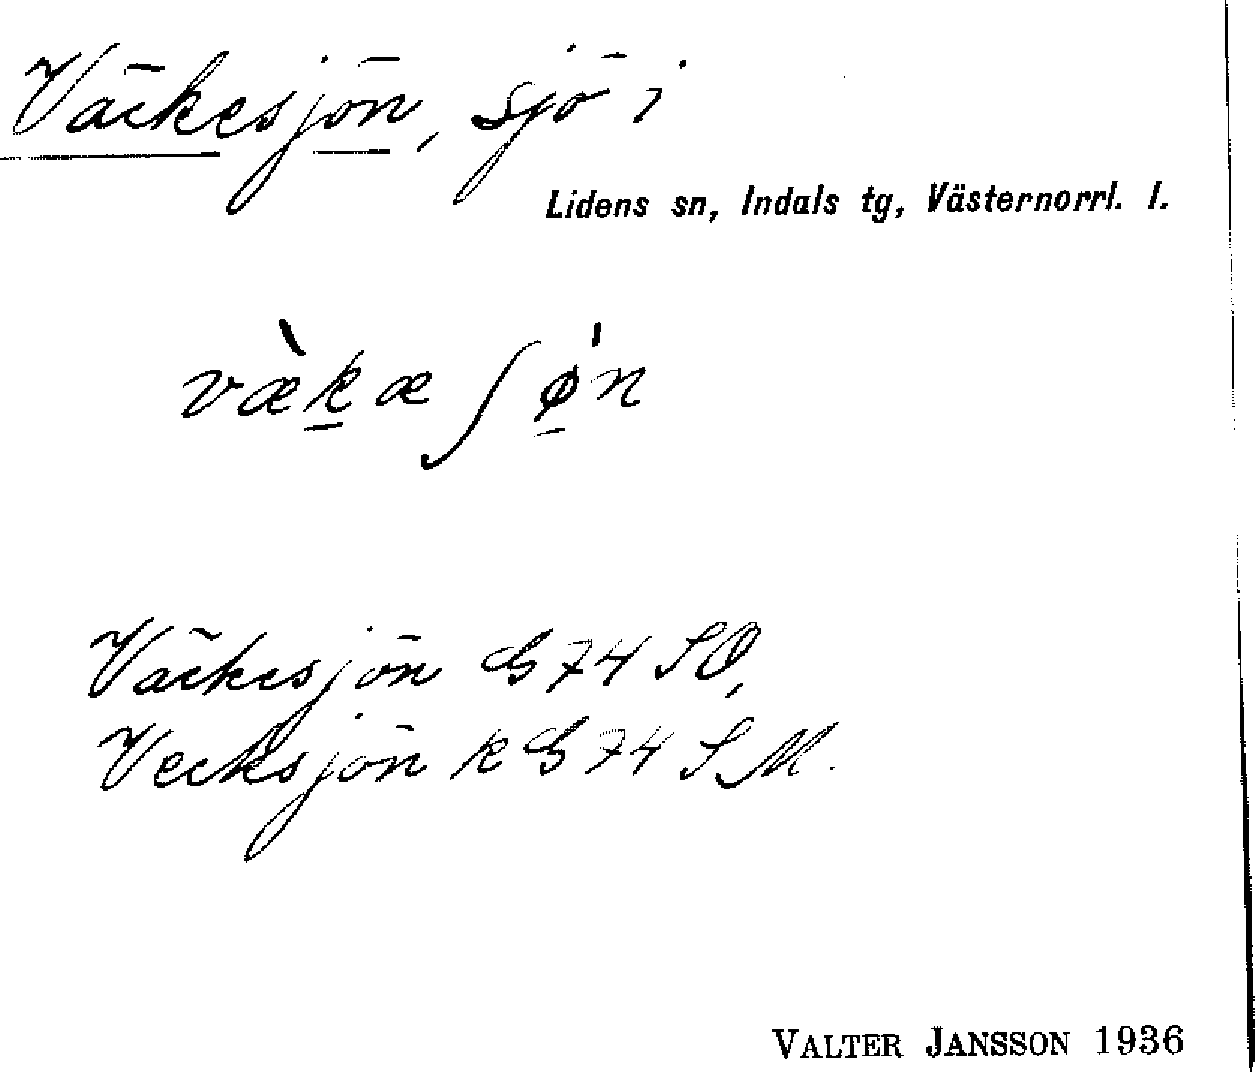 Väckesjön, sjö i
Lidens sn, Indals tg, Västernorrl. l.
væ̀kæʃø'n
Väckesjön G 74 SO,
Vecksjön k G 74 SM.
VALTER JANSSON 1936